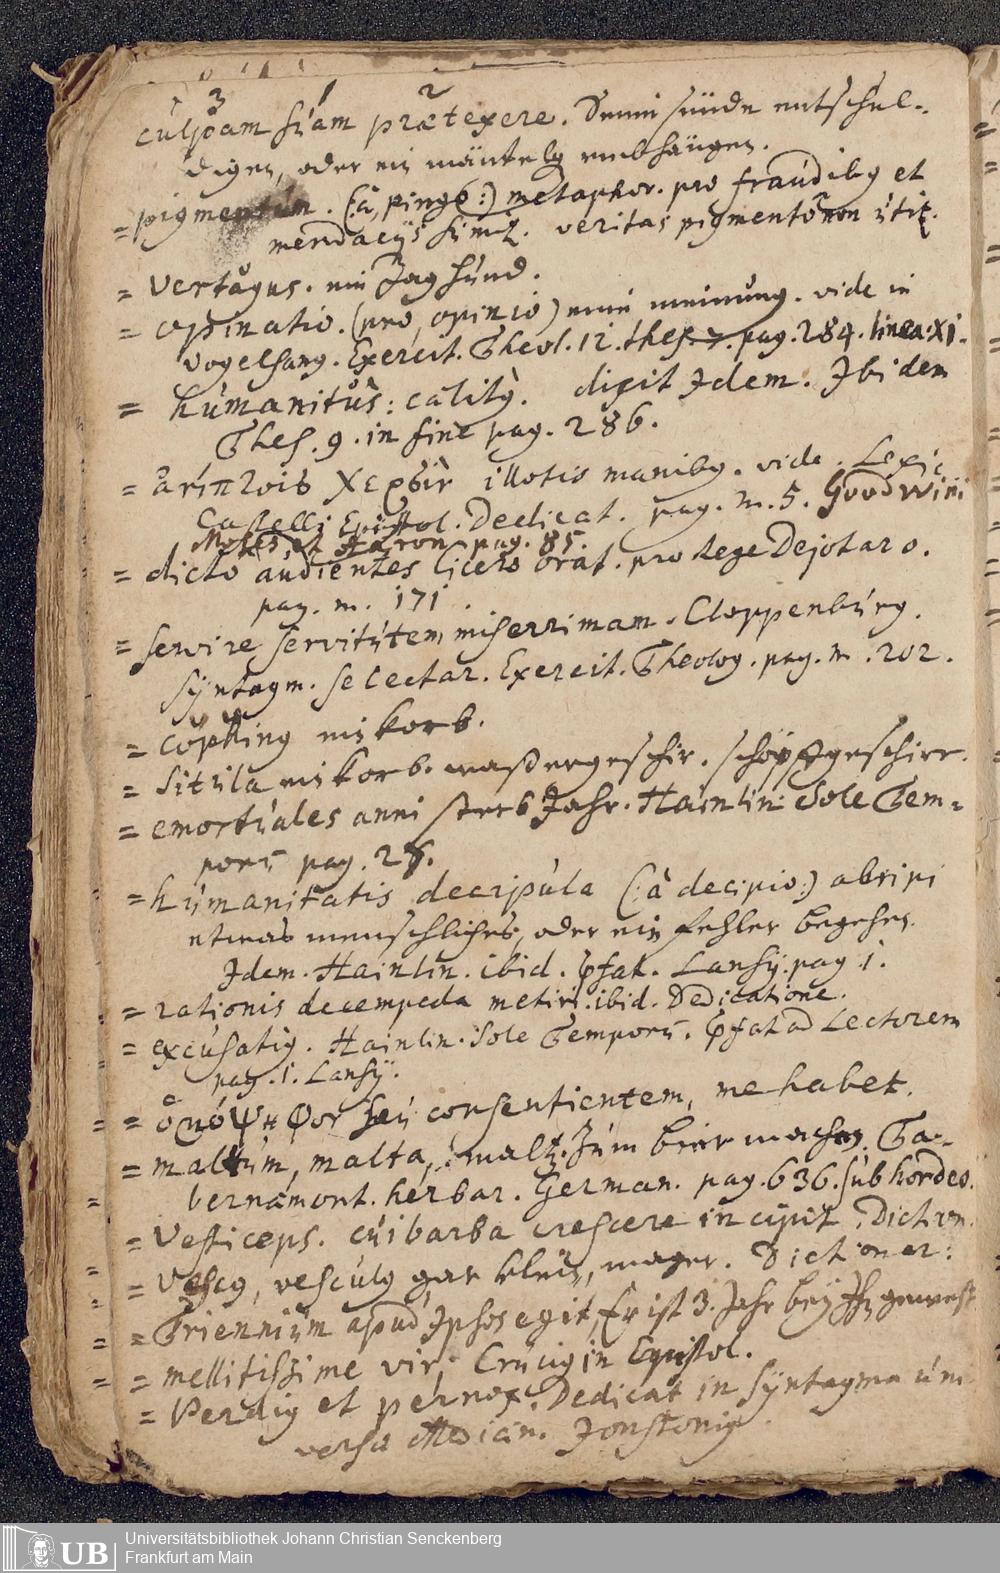 culpam suam prætexere. Seine sünde entschul-
digen, oder ein mäntelg umbhängen.
= pigmentum. (:à, pingo:) metaphor. pro fraudibg et
mendacijs sumit. veritas pigmentô non útit.
= Vertagus. ein Jaghúnd.
= opinatio. (pro, opinio) eine meinúng. vide in
Vogelsang. Exercit. Theol. 12. thes. 7. pag. 284. linea: XI.
= húmanitús: calitg. dixit Idem. Ibidem
Thes. 9. in fine pag. 286.
= illotis manibg. vide. Lexic
Castelli Epistol. Dedicat. pag. m. 5. Goodwini
Moses et Aaron pag. 85.
= dicto audientes Cicero orat. pro Rege Dejotaro.
pag. m. 171.
= servire servitútem miserrimam. Cloppenbúrg.
Syntagm. selectar. Exercit. Theolog. pag. m. 202.
= cophing ein korb.
= Sitúla ein korb. waßergeschir. schöpffgeschirr.
= emortúales anni sterb Jahr. Hainlin: Sole Tem-
poris pag. 25.
= húmanitatis decipúla (:à decipio:) abripi
etwas menschliches, oder ein fehler begehen.
Idem. Hainlin. ibid. Lansij. pag. 1.
= rationis decempeda metiri. ibid. Dedicatione.
= excúsatig. Hainlin. Sole Temporis. ad Lectorem
pag. 1. Lansij.
= ὁμόψηφον seú consentientem, me habet.
= maltúm, malta, maltz. Zúm bier machen. Ta-
bernámont. herbar. German. pag. 636. súb hordeo.
= Vesticeps. cúi barba crescere incipit. Diction.
= Vescg, vescúlg gar klein, mager. Dictioner:
= Triennium apud Ipsos egit, Er ist 3. Jahr beÿ Ihn gewest
= mellitissime vir; Crúcig in Epistol.
= Perdig et pernox. Dedicat in Syntagma úni
versa Medicin. Jonstonij
Universitätsbibliothek Johann Christian Senckenberg
Frankfurt am Main
UB